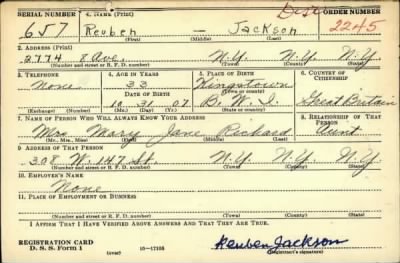 SERIAL NUMBER 1. NAME (Print) ORDER NUMBER
657 Reuben — Jackson 2245
(First) (Middle) (Last)
2. ADDRESS (Print)
2774 8 Ave. N.Y. N.Y. N.Y.
(Number and street or R. F. D. number) (Town) (County) (State)
3. TELEPHONE 4. AGE IN YEARS 5. PLACE OF BIRTH 6. COUNTRY OF CITIZENSHIP
None 33 Kingstown
DATE OF BIRTH (Town or county)
10 31 07 B. W. I. Great Britain
(Exchange) (Number) (Mo.) (Day) (Yr.) (State or country)
7. NAME OF PERSON WHO WILL ALWAYS KNOW YOUR ADDRESS 8. RELATIONSHIP OF THAT PERSON
Mrs Mary Jane Richard Aunt
(Mr., Mrs., Miss) (First) (Middle) (Last)
9. ADDRESS OF THAT PERSON
308 W. 147 St. N.Y. N.Y. N.Y.
(Number and street or R. F. D. number) (Town) (County) (State)
10. EMPLOYER'S NAME
None
11. PLACE OF EMPLOYMENT OR BUSINESS
(Number and street or R. F. D. number) (Town) (County) (State)
I AFFIRM THAT I HAVE VERIFIED ABOVE ANSWERS AND THAT THEY ARE TRUE.
REGISTRATION CARD
D. S. S. Form 1 (over) 16—17105 Reuben Jackson
(Registrant's signature)